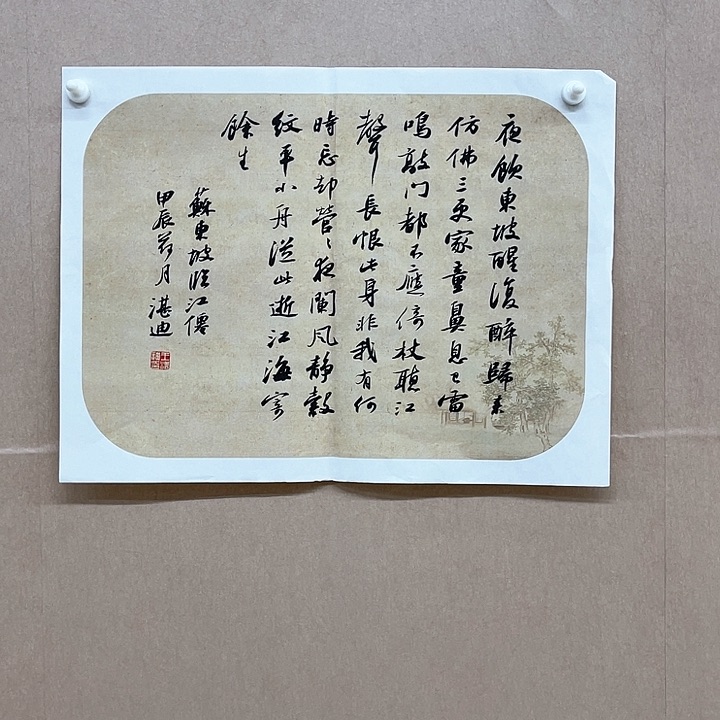 夜飲東坡醒復醉歸來
仿佛三更家童鼻息已雷
鳴敲门都不應倚杖聽江
聲長恨此身非我有何
時忘却營〻夜闌风静縠
紋平小舟從此逝江海寄
餘生
蘇東坡临江僊
甲辰月湛迪